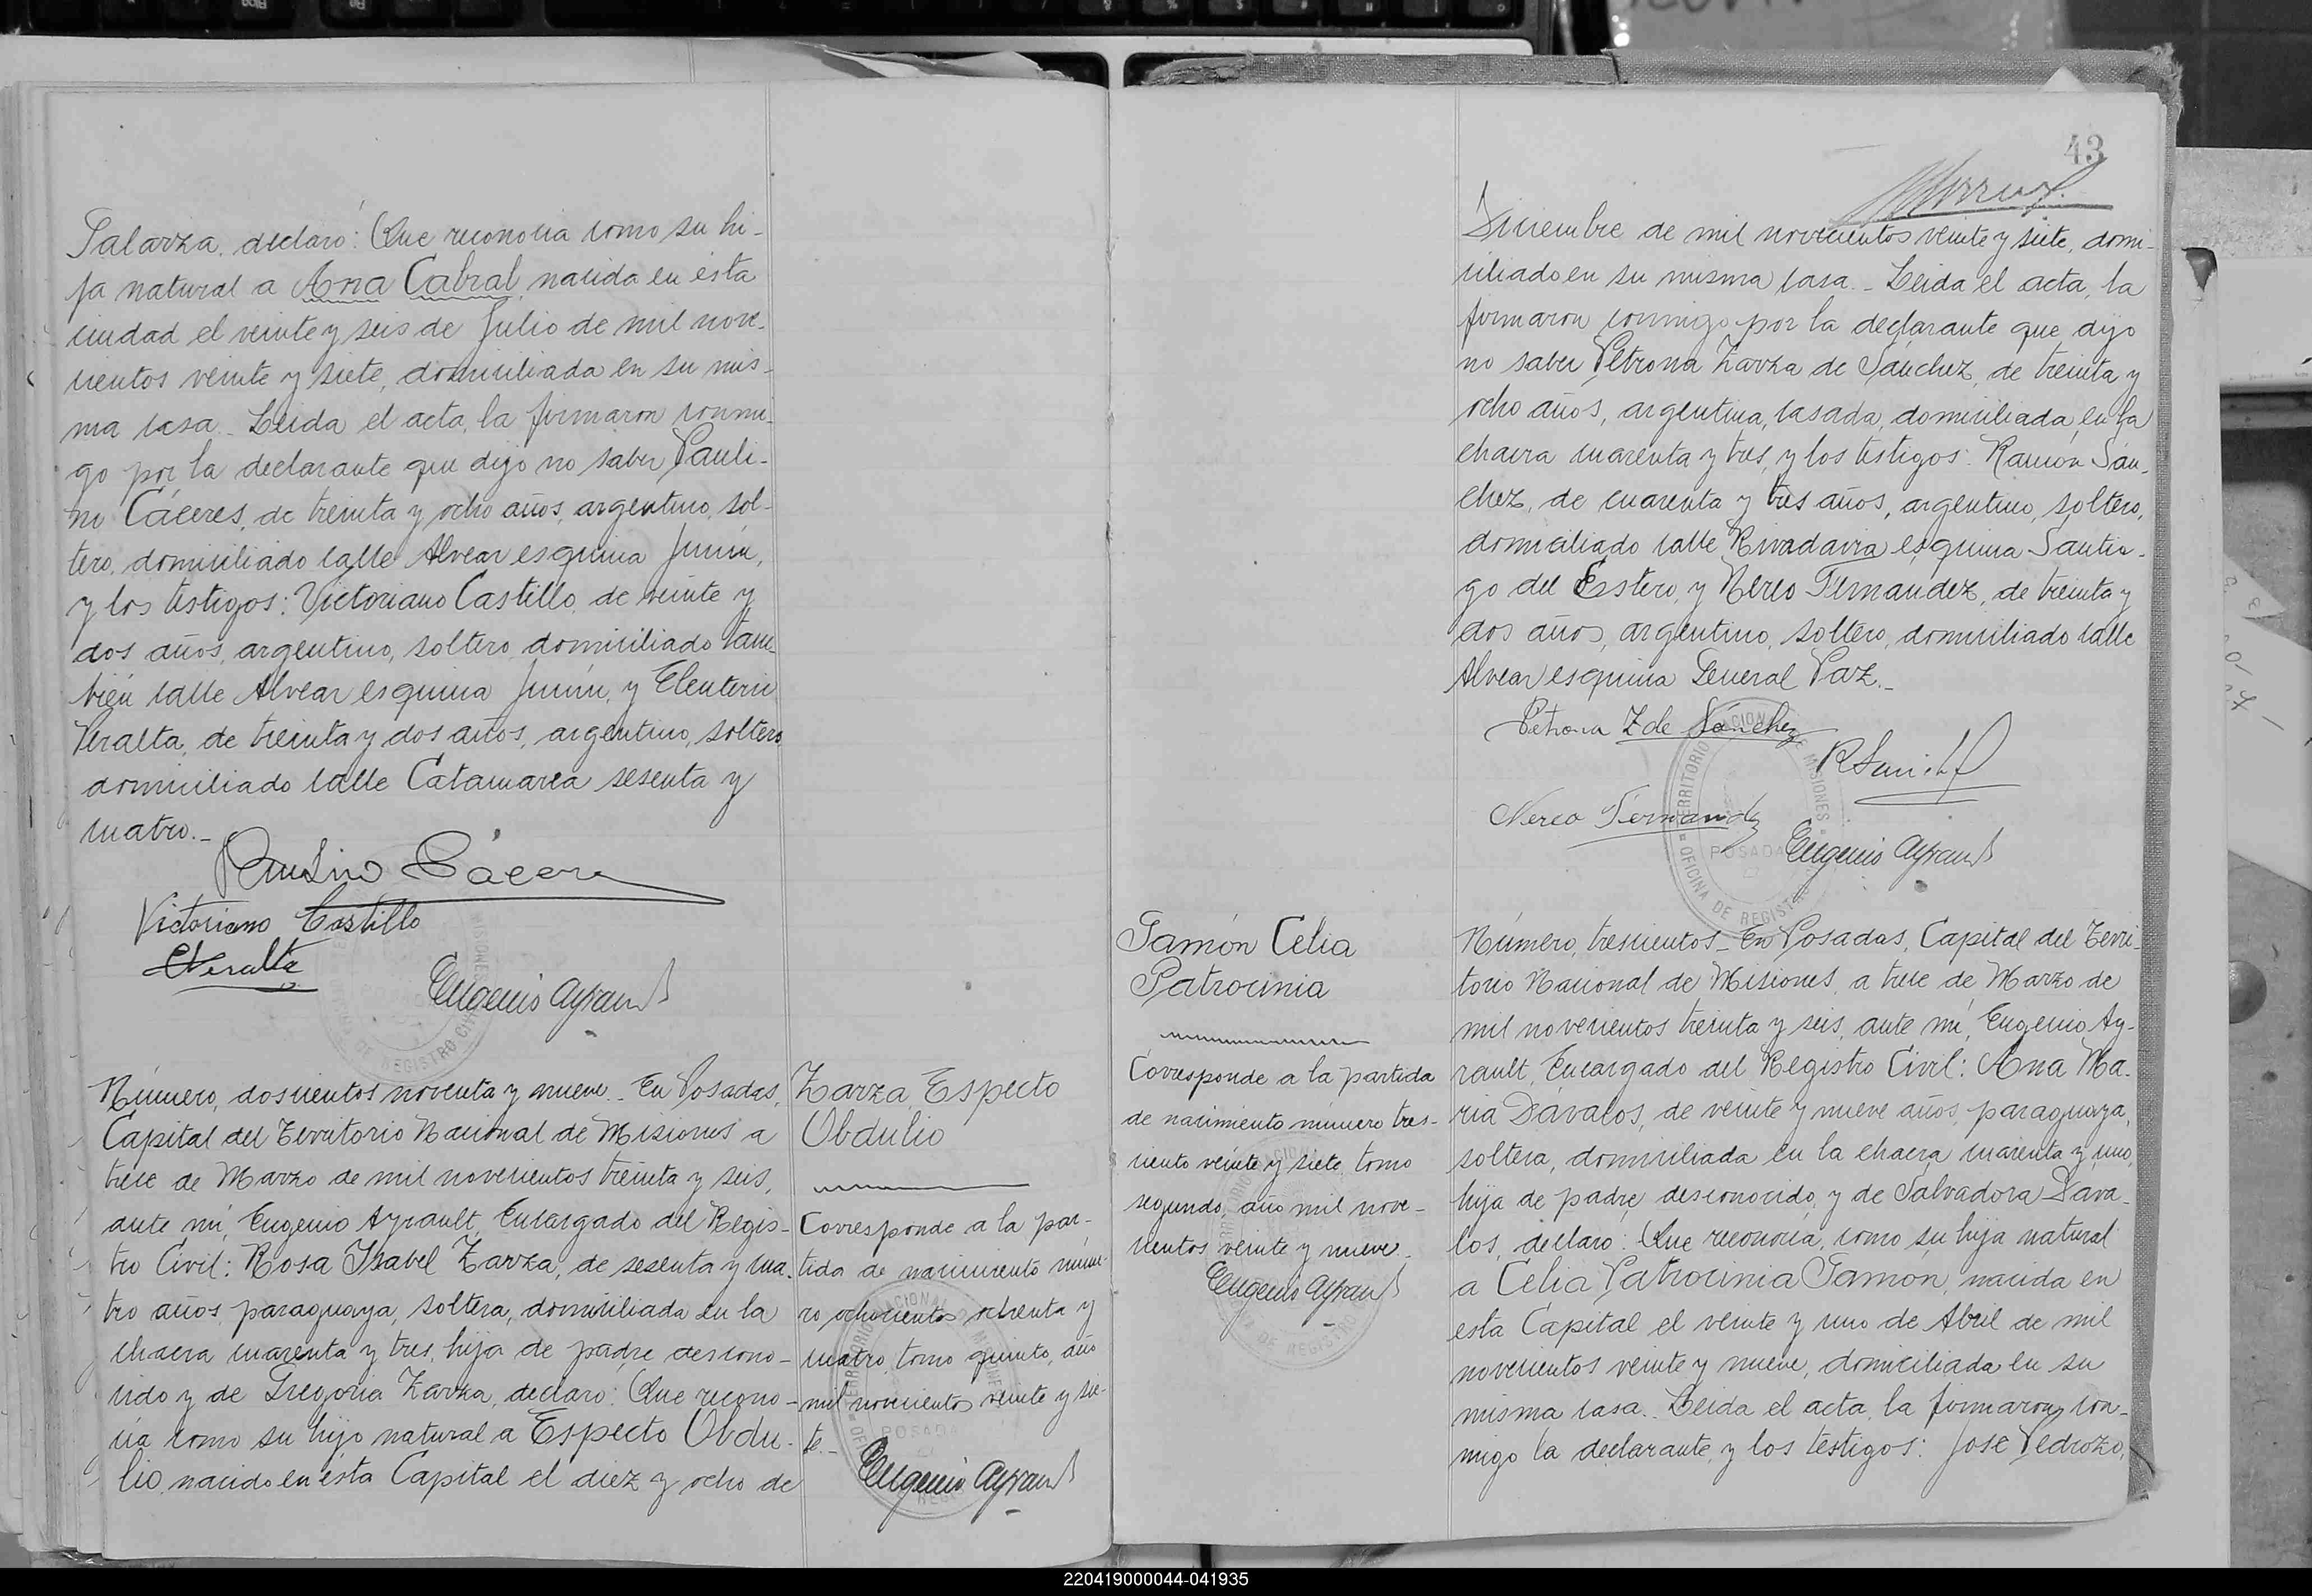 Galarza, declaró: Que reconocía como su hi-
ja natural a Ana Cabral, nacida en ésta
ciudad el veinte y seis de Julio de mil nove-
cientos veinte y siete, domiciliada en su mis-
ma casa.- Leída el acta, la firmaron conmi-
go por la declarante que dijo no saber Pauli-
no Cáceres, de treinta y ocho años, argentino, sol-
tero, domiciliado calle Alvear esquina Junín,
y los testigos: Victoriano Castillo, de veinte y
dos años, argentino, soltero, domiciliado tam-
bién calle Alvear esquina Junín, y Eleuterio
Peralta, de treinta y dos años, argentino, soltero,
domiciliado calle Catamarca sesenta y
cuatro.-
Paulino Cácere
Victoriano Castillo
EPeralta
Eugenio Ayrault
Número, doscientos noventa y nueve.- En Posadas,
Capital del Territorio Nacional de Misiones a
trece de Marzo de mil novecientos treinta y seis,
ante mí, Eugenio Ayrault, Encargado del Regis-
tro Civil: Rosa Isabel Zarza, de sesenta y cua-
tro años, paraguaya, soltera, domiciliada en la
chacra cuarenta y tres, hija de padre descono-
cido y de Gregoria Zarza, declaró: Que recono-
cía como su hijo natural a Especto Obdu-
lio, nacido en ésta Capital el diez y ocho de
Zarza, Especto
Obdulio
Corresponde a la par-
tida de nacimiento núme-
ro ochocientos ochenta y
cuatro, tomo quinto, año
mil novecientos veinte y sie-
te.-
Eugenio Ayrault
43
Diciembre de mil novecientos veinte y siete, domi-
ciliado en su misma casa.- Leída el acta, la
firmaron conmigo por la declarante que dijo
no saber Petrona Zarza de Sánchez, de treinta y
ocho años, argentina, casada, domiciliada en la
chacra cuarenta y tres, y los testigos: Ramón Sán-
chez, de cuarenta y tres años, argentino, soltero,
domiciliado calle Rivadavia esquina Santia-
go del Estero, y Nereo Fernandez, de treinta y
dos años, argentino, soltero, domiciliado calle
Alvear esquina General Paz.-
Petrona Z de Sánchez
Nereo Fernandez
Eugenio Ayrault
TERRITORIO NACIONAL DE MISIONES
POSADAS
OFICINA DE REGISTRO
Gamón Celia
Patrocinia
Corresponde a la partida
de nacimiento número tres-
ciento veinte y siete, tomo
segundo, año mil nove-
cientos veinte y nueve.
Eugenio Ayrault
Número, trescientos.- En Posadas, Capital del Terri-
torio Nacional de Misiones, a trece de Marzo de
mil novecientos treinta y seis, ante mí, Eugenio Ay-
rault, Encargado del Registro Civil: Ana Ma-
ría Dávalos, de veinte y nueve años, paraguaya,
soltera, domiciliada en la chacra cuarenta y uno,
hija de padre desconocido, y de Salvadora Dáva-
los, declaró: Que reconocía como su hija natural
a Celia Patrocinia Gamón, nacida en
esta Capital el veinte y uno de Abril de mil
novecientos veinte y nueve, domiciliada en su
misma casa.- Leída el acta, la firmaron con-
migo la declarante, y los testigos: José Pedrozo,
220419000044-041935